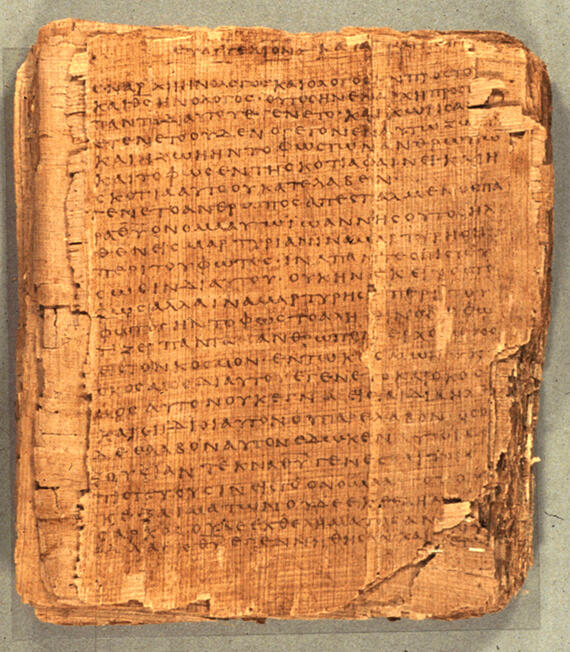 ΕΥΑΓΓΕΛΙΟΝ ΚΑ
ΕΝ ΑΡΧΗ ΗΝ Ο ΛΟΓΟΣ ΚΑΙ Ο ΛΟΓΟΣ ΗΝ ΠΡΟΣ ΤΟ
ΚΑΙ ΘΣ ΗΝ Ο ΛΟΓΟΣ · ΟΥΤΟΣ ΗΝ ΕΝ ΑΡΧΗ ΠΡΟΣ
ΠΑΝΤΑ ΔΙ ΑΥΤΟΥ ΕΓΕΝΕΤΟ · ΚΑΙ ΧΩΡΙΣ
ΕΓΕΝΕΤΟ ΟΥΔΕΝ Ο ΓΕΓΟΝΕΝ ΕΝ ΑΥΤΩ ΖΩ
ΚΑΙ Η ΖΩΗ ΗΝ ΤΟ ΦΩΣ ΤΩΝ ΑΝΘΡΩΠΩ
ΚΑΙ ΤΟ ΦΩΣ ΕΝ ΤΗ ΣΚΟΤΙΑ ΦΑΙΝΕΙ · ΚΑΙ Η
ΣΚΟΤΙΑ ΑΥΤΟ ΟΥ ΚΑΤΕΛΑΒΕΝ
ΕΓΕΝΕΤΟ ΑΝΘΡΩΠΟΣ ΑΠΕΣΤΑΛΜΕΝΟΣ ΠΑ
ΡΑ ΘΥ ΟΝΟΜΑ ΑΥΤΩ ΙΩΑΝΝΗΣ ΟΥΤΟΣ ΗΛ
ΘΕΝ ΕΙΣ ΜΑΡΤΥΡΙΑΝ ΙΝΑ ΜΑΡΤΥΡΗΣΗ
ΠΕΡΙ ΤΟΥ ΦΩΤΟΣ · ΙΝΑ ΠΑΝΤΕΣ ΠΙΣΤΕΥ
ΣΩΣΙΝ ΔΙ ΑΥΤΟΥ · ΟΥΚ ΗΝ ΕΚΕΙΝΟΣ ΤΟ Φ
ΩΣ ΑΛΛΑ ΙΝΑ ΜΑΡΤΥΡΗΣΗ ΠΕΡΙ ΤΟΥ
ΦΩΤΟΣ · ΗΝ ΤΟ ΦΩΣ ΤΟ ΑΛΗΘΙΝΟΝ Ο ΦΩ
ΤΙΖΕΙ ΠΑΝΤΑ ΑΝΘΡΩΠΟΝ ΕΡΧΟΜΕΝΟΝ
ΕΙΣ ΤΟΝ ΚΟΣΜΟΝ · ΕΝ ΤΩ ΚΟΣΜΩ ΗΝ
ΚΑΙ Ο ΚΟΣΜΟΣ ΔΙ ΑΥΤΟΥ ΕΓΕΝΕΤΟ ΚΑΙ Ο ΚΟΣ
ΜΟΣ ΑΥΤΟΝ ΟΥΚ ΕΓΝΩ ΕΙΣ ΤΑ ΙΔΙΑ ΗΛΘΕ
ΚΑΙ ΟΙ ΙΔΙΟΙ ΑΥΤΟΝ ΟΥ ΠΑΡΕΛΑΒΟΝ · ΟΣΟΙ
ΔΕ ΕΛΑΒΟΝ ΑΥΤΟΝ ΕΔΩΚΕΝ ΑΥΤΟΙΣ Ε
ΞΟΥΣΙΑΝ ΤΕΚΝΑ ΘΥ ΓΕΝΕΣΘΑΙ ΤΟΙΣ
ΠΙΣΤΕΥΟΥΣΙΝ ΕΙΣ ΤΟ ΟΝΟΜΑ
ΑΙΜΑΤΩΝ ΟΥΔΕ ΕΚ ΘΕΛΗΜΑ
ΣΑΡΚΟΣ · ΟΥΔΕ ΕΚ ΘΕΛΗΜΑΤΟΣ ΑΝ
ΑΛΛΑ ΕΚ ΘΥ ΕΓΕΝΝΗΘΗΣΑΝ · ΚΑΙ